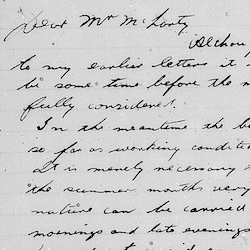 Dear Mr McLarty
Altho
to my earlier letters it
be some time before the m
fully considered.
In the meantime the b
so far as working condition
It is merely necessary
the summer months very
nature can be carried
mornings and late evenings